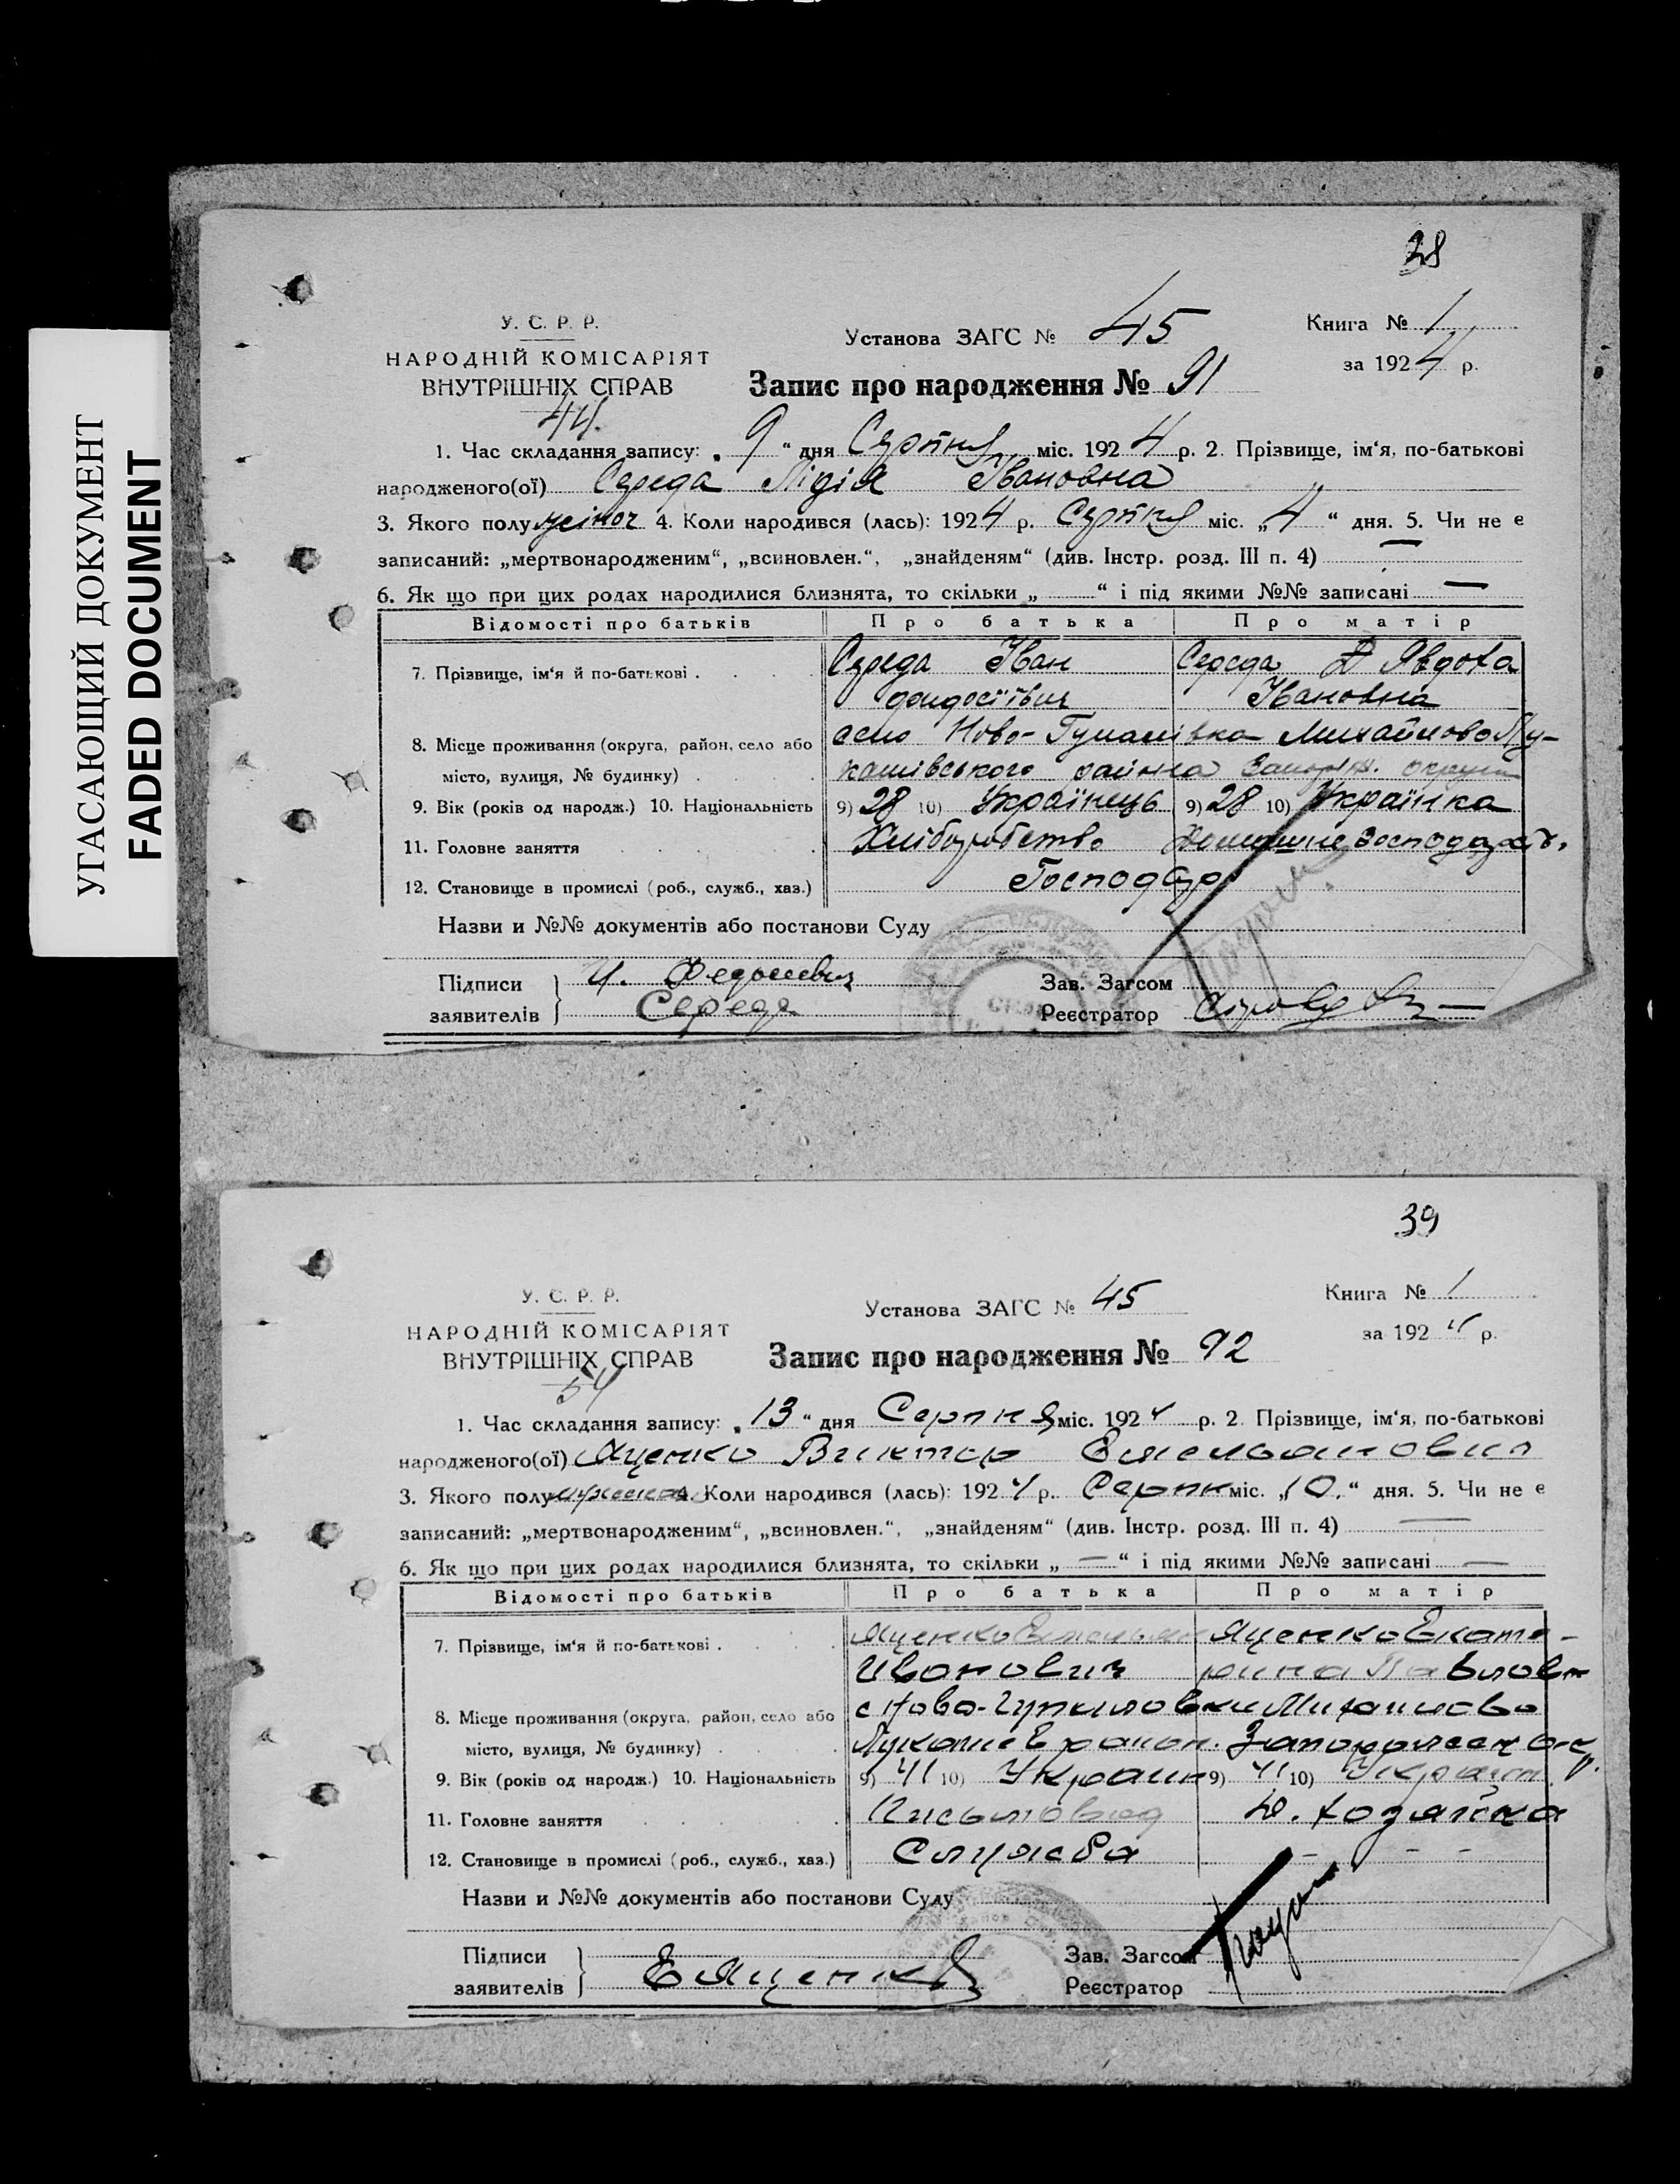 УГАСАЮЩИЙ ДОКУМЕНТ
FADED DOCUMENT
38
У. С. Р. Р.
НАРОДНІЙ КОМІСАРІЯТ
ВНУТРІШНІХ СПРАВ
44.
Установа ЗАГС № 45
Запис про народження № 91
Книга № 1
за 1924 р.
1. Час складання запису: „9“ дня Серпня міс. 1924 р. 2. Прізвище, ім‘я, по-батькові
народженого(ої) Середа Лідія Івановна
3. Якого полу жіноч 4. Коли народився (лась): 1924 р. Серпня міс. „4“ дня. 5. Чи не є
записаний: „мертвонародженим“, „всиновлен.“, „знайденям“ (див. Інстр. розд. III п. 4) —
6. Як що при цих родах народилися близнята, то скільки „ “ і під якими №№ записані —
Відомості про батьків Про батька Про матір
7. Прізвище, ім‘я й по-батькові Середа Іван Середа Явдоха
Івановна
8. Місце проживання (округа, район, село або село Ново- Михайлово Лу-
місто, вулиця, № будинку) кашівського района Запоріж. округи
9. Вік (років од народж.) 10. Національність 9) 28 10) Українець 9) 28 10) Українка
11. Головне заняття Хліборобство Домашнє господарств.
12. Становище в промислі (роб., служб., хаз.) Господар
Назви и №№ документів або постанови Суду
Підписи И.
заявителів Середа
Зав. Загсом
Реєстратор
39
У. С. Р. Р.
НАРОДНІЙ КОМІСАРІЯТ
ВНУТРІШНІХ СПРАВ
54
Установа ЗАГС № 45
Запис про народження № 92
Книга № 1
за 1924 р.
1. Час складання запису: „13“ дня Серпня міс. 1924 р. 2. Прізвище, ім‘я, по-батькові
народженого(ої) Яценко Виктор Емельянович
3. Якого полу 4. Коли народився (лась): 1924 р. Серпня міс. „10.“ дня. 5. Чи не є
записаний: „мертвонародженим“, „всиновлен.“, „знайденям“ (див. Інстр. розд. III п. 4) —
6. Як що при цих родах народилися близнята, то скільки „—“ і під якими №№ записані —
Відомості про батьків Про батька Про матір
7. Прізвище, ім‘я й по-батькові Яценко Емельян Яценко Екате-
Иванович рина Павловн
8. Місце проживання (округа, район, село або с Ново- Михайлово
місто, вулиця, № будинку) Лукашев район. Запорожск ок
9. Вік (років од народж.) 10. Національність 9) 41 10) Украин 9) 41 10) Украин
11. Головне заняття Письмовод Д. хозяйка
12. Становище в промислі (роб., служб., хаз.) Служба - - -
Назви и №№ документів або постанови Суду
Підписи
заявителів Е Яценко
Зав. Загсом
Реєстратор